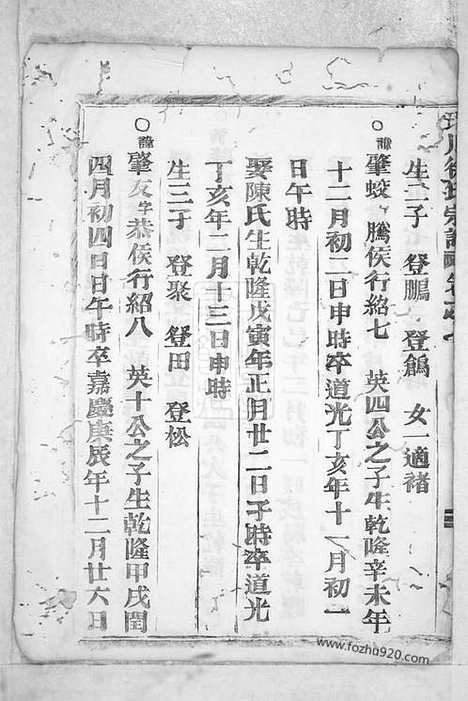 宗譜
生二子 登鵬 登鶴 女一適褚
○諱肇蛟 騰侯行紹七 英四公之子生乾隆辛未年
十二月初二日申時卒道光丁亥年十一月初一
日午時
娶陳氏生乾隆戊寅年正月廿二日子時卒道光
丁亥年二月十三日申時
生三子 登聚 登田 登松
○諱肇友字恭侯行紹八 英十公之子生乾隆甲戌閏
四月初四日日午時卒嘉慶庚辰年十二月廿六日
www.fozhu920.com